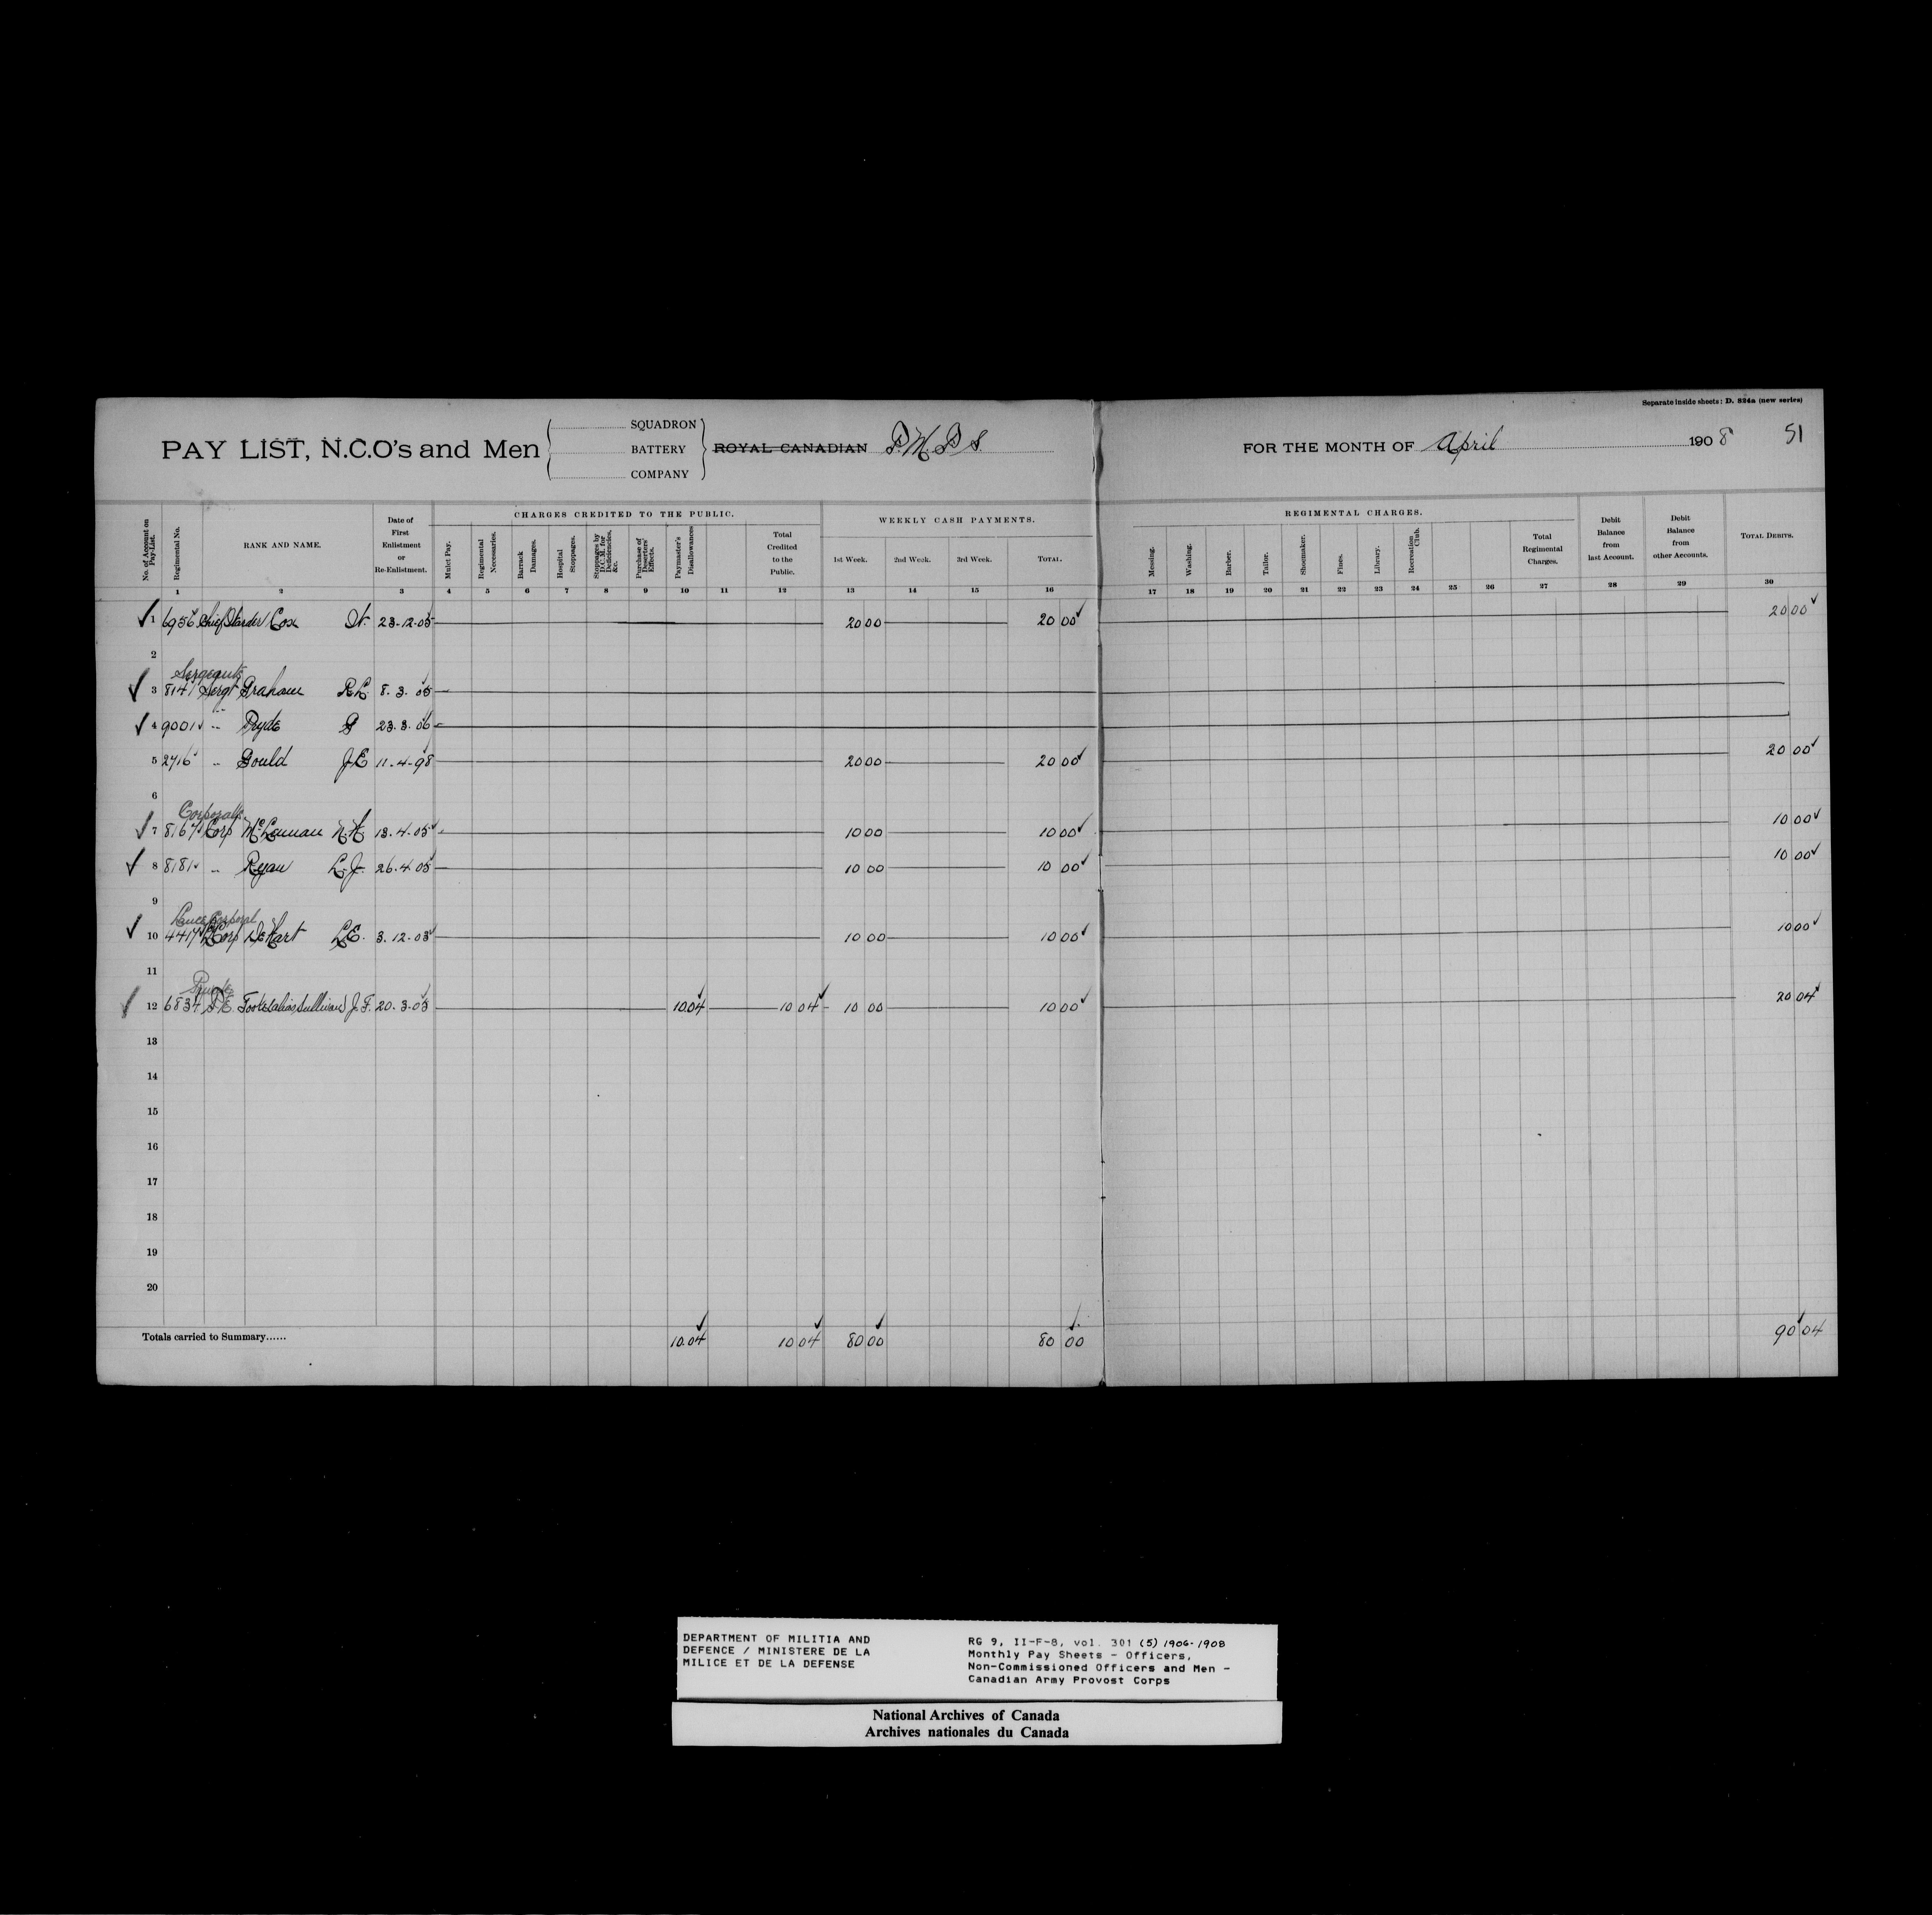 Separate inside sheets: D. 824a (new series)
PAY LIST, N.C.O's and Men
SQUADRON
BATTERY
COMPANY
ROYAL CANADIAN
FOR THE MONTH OF April 1908 51
CHARGES CREDITED TO THE PUBLIC.
WEEKLY CASH PAYMENTS.
REGIMENTAL CHARGES.
No. of Account on Pay-List.
Regimental No.
RANK AND NAME.
Date of First Enlistment or Re-Enlistment.
Mulct Pay.
Regimental Necessaries.
Barrack Damages.
Hospital Stoppages.
Stoppages by D.C.M. for Deficiencies, &c.
Purchase of Deserters' Effects.
Paymaster's Disallowances
Total Credited to the Public.
1st Week.
2nd Week.
3rd Week.
TOTAL.
Messing.
Washing.
Barber.
Tailor.
Shoemaker.
Fines.
Library.
Recreation Club.
Total Regimental Charges.
Debit Balance from last Account.
Debit Balance from other Accounts.
TOTAL DEBITS.
1 2 3 4 5 6 7 8 9 10 11 12 13 14 15 16 17 18 19 20 21 22 23 24 25 26 27 28 29 30
1 6956 Chief Warder Cox 23-12-05 20 00 20 00 20 00
2
Sergeants
3 8141 Sergt Graham R.L. 8. 3. 05
4 9001 " Pryde G 23. 3. 06
5 2716 " Gould J E 11-4-98 20 00 20 00 20 00
6
Corporals
7 8167 Corp McLennan 18. 4. 05 10 00 10 00 10 00
8 8181 " Ryan L. J. 26. 4. 05 10 00 10 00 10 00
9
Lance Corporal
10 4417 L Corp DeHart L E. 3. 12. 03 10 00 10 00 10 00
11
Private
12 6834 Pte. (alias Sullivan) J. F. 20. 3. 05 10.04 10 04 10 00 10 00 20 04
13
14
15
16
17
18
19
20
Totals carried to Summary...... 10.04 10 04 80 00 80 00 90 04
DEPARTMENT OF MILITIA AND
DEFENCE / MINISTERE DE LA
MILICE ET DE LA DEFENSE
RG 9, II-F-8, vol. 301 (5) 1906-1908
Monthly Pay Sheets - Officers,
Non-Commissioned Officers and Men -
Canadian Army Provost Corps
National Archives of Canada
Archives nationales du Canada